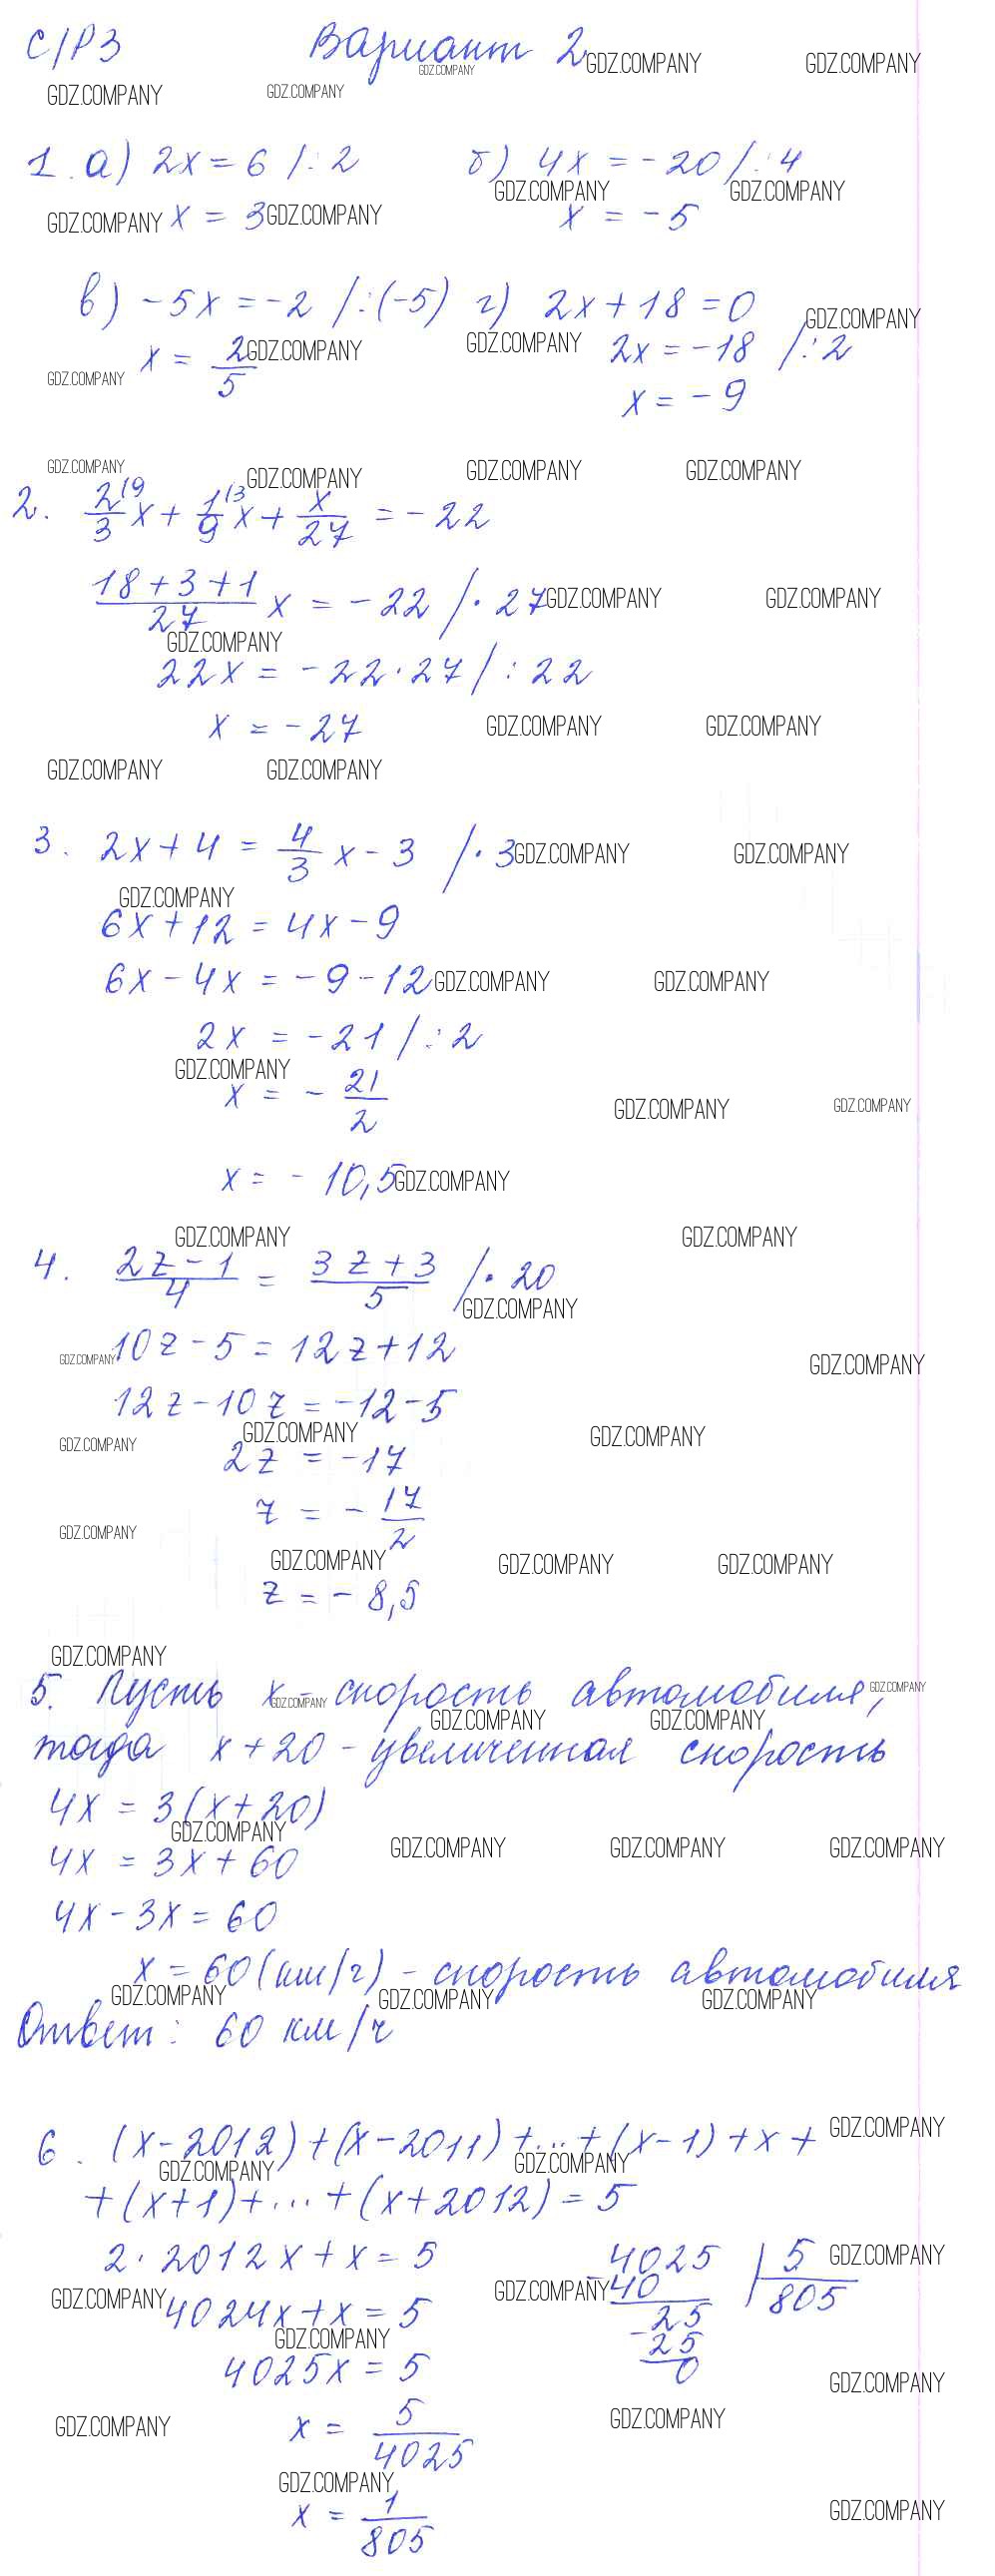 С/Р3 Вариант 2
GDZ.COMPANY GDZ.COMPANY GDZ.COMPANY
GDZ.COMPANY GDZ.COMPANY
1. а) 2x = 6 /:2 б) 4x = -20 /:4
GDZ.COMPANY GDZ.COMPANY
x = 3 x = -5
GDZ.COMPANY GDZ.COMPANY
в) -5x = -2 /:(-5) г) 2x + 18 = 0
GDZ.COMPANY
x = 2/5 2x = -18 /:2
GDZ.COMPANY GDZ.COMPANY
GDZ.COMPANY
x = -9
GDZ.COMPANY GDZ.COMPANY GDZ.COMPANY GDZ.COMPANY
2. 2/3 (9 x + 1/9 (3 x + x/27 = -22
(18+3+1)/27 x = -22 /·27
GDZ.COMPANY GDZ.COMPANY
GDZ.COMPANY
22x = -22·27 /:22
x = -27
GDZ.COMPANY GDZ.COMPANY
GDZ.COMPANY GDZ.COMPANY
3. 2x + 4 = 4/3 x - 3 /·3
GDZ.COMPANY GDZ.COMPANY
GDZ.COMPANY
6x + 12 = 4x - 9
6x - 4x = -9 - 12
GDZ.COMPANY GDZ.COMPANY
2x = -21 /:2
GDZ.COMPANY
x = - 21/2
GDZ.COMPANY GDZ.COMPANY
x = - 10,5
GDZ.COMPANY
GDZ.COMPANY GDZ.COMPANY
4. (2z-1)/4 = (3z+3)/5 /·20
GDZ.COMPANY
10z - 5 = 12z + 12
GDZ.COMPANY GDZ.COMPANY
12z - 10z = -12 - 5
GDZ.COMPANY GDZ.COMPANY GDZ.COMPANY
2z = -17
z = - 17/2
GDZ.COMPANY
GDZ.COMPANY GDZ.COMPANY GDZ.COMPANY
z = - 8,5
GDZ.COMPANY
5. Пусть x - скорость автомобиля,
GDZ.COMPANY GDZ.COMPANY
GDZ.COMPANY GDZ.COMPANY
тогда x + 20 - увеличенная скорость
4x = 3(x + 20)
GDZ.COMPANY
4x = 3x + 60
GDZ.COMPANY GDZ.COMPANY GDZ.COMPANY
4x - 3x = 60
x = 60 (км/ч) - скорость автомобиля
GDZ.COMPANY GDZ.COMPANY GDZ.COMPANY
Ответ: 60 км/ч
6. (x-2012) + (x-2011) + ... + (x-1) + x +
GDZ.COMPANY
GDZ.COMPANY GDZ.COMPANY
+ (x+1) + ... + (x+2012) = 5
2·2012x + x = 5 4025 | 5
GDZ.COMPANY
-40 805
GDZ.COMPANY GDZ.COMPANY
4024x + x = 5 25
GDZ.COMPANY
-25
4025x = 5 0
GDZ.COMPANY
x = 5/4025
GDZ.COMPANY GDZ.COMPANY
GDZ.COMPANY
x = 1/805
GDZ.COMPANY